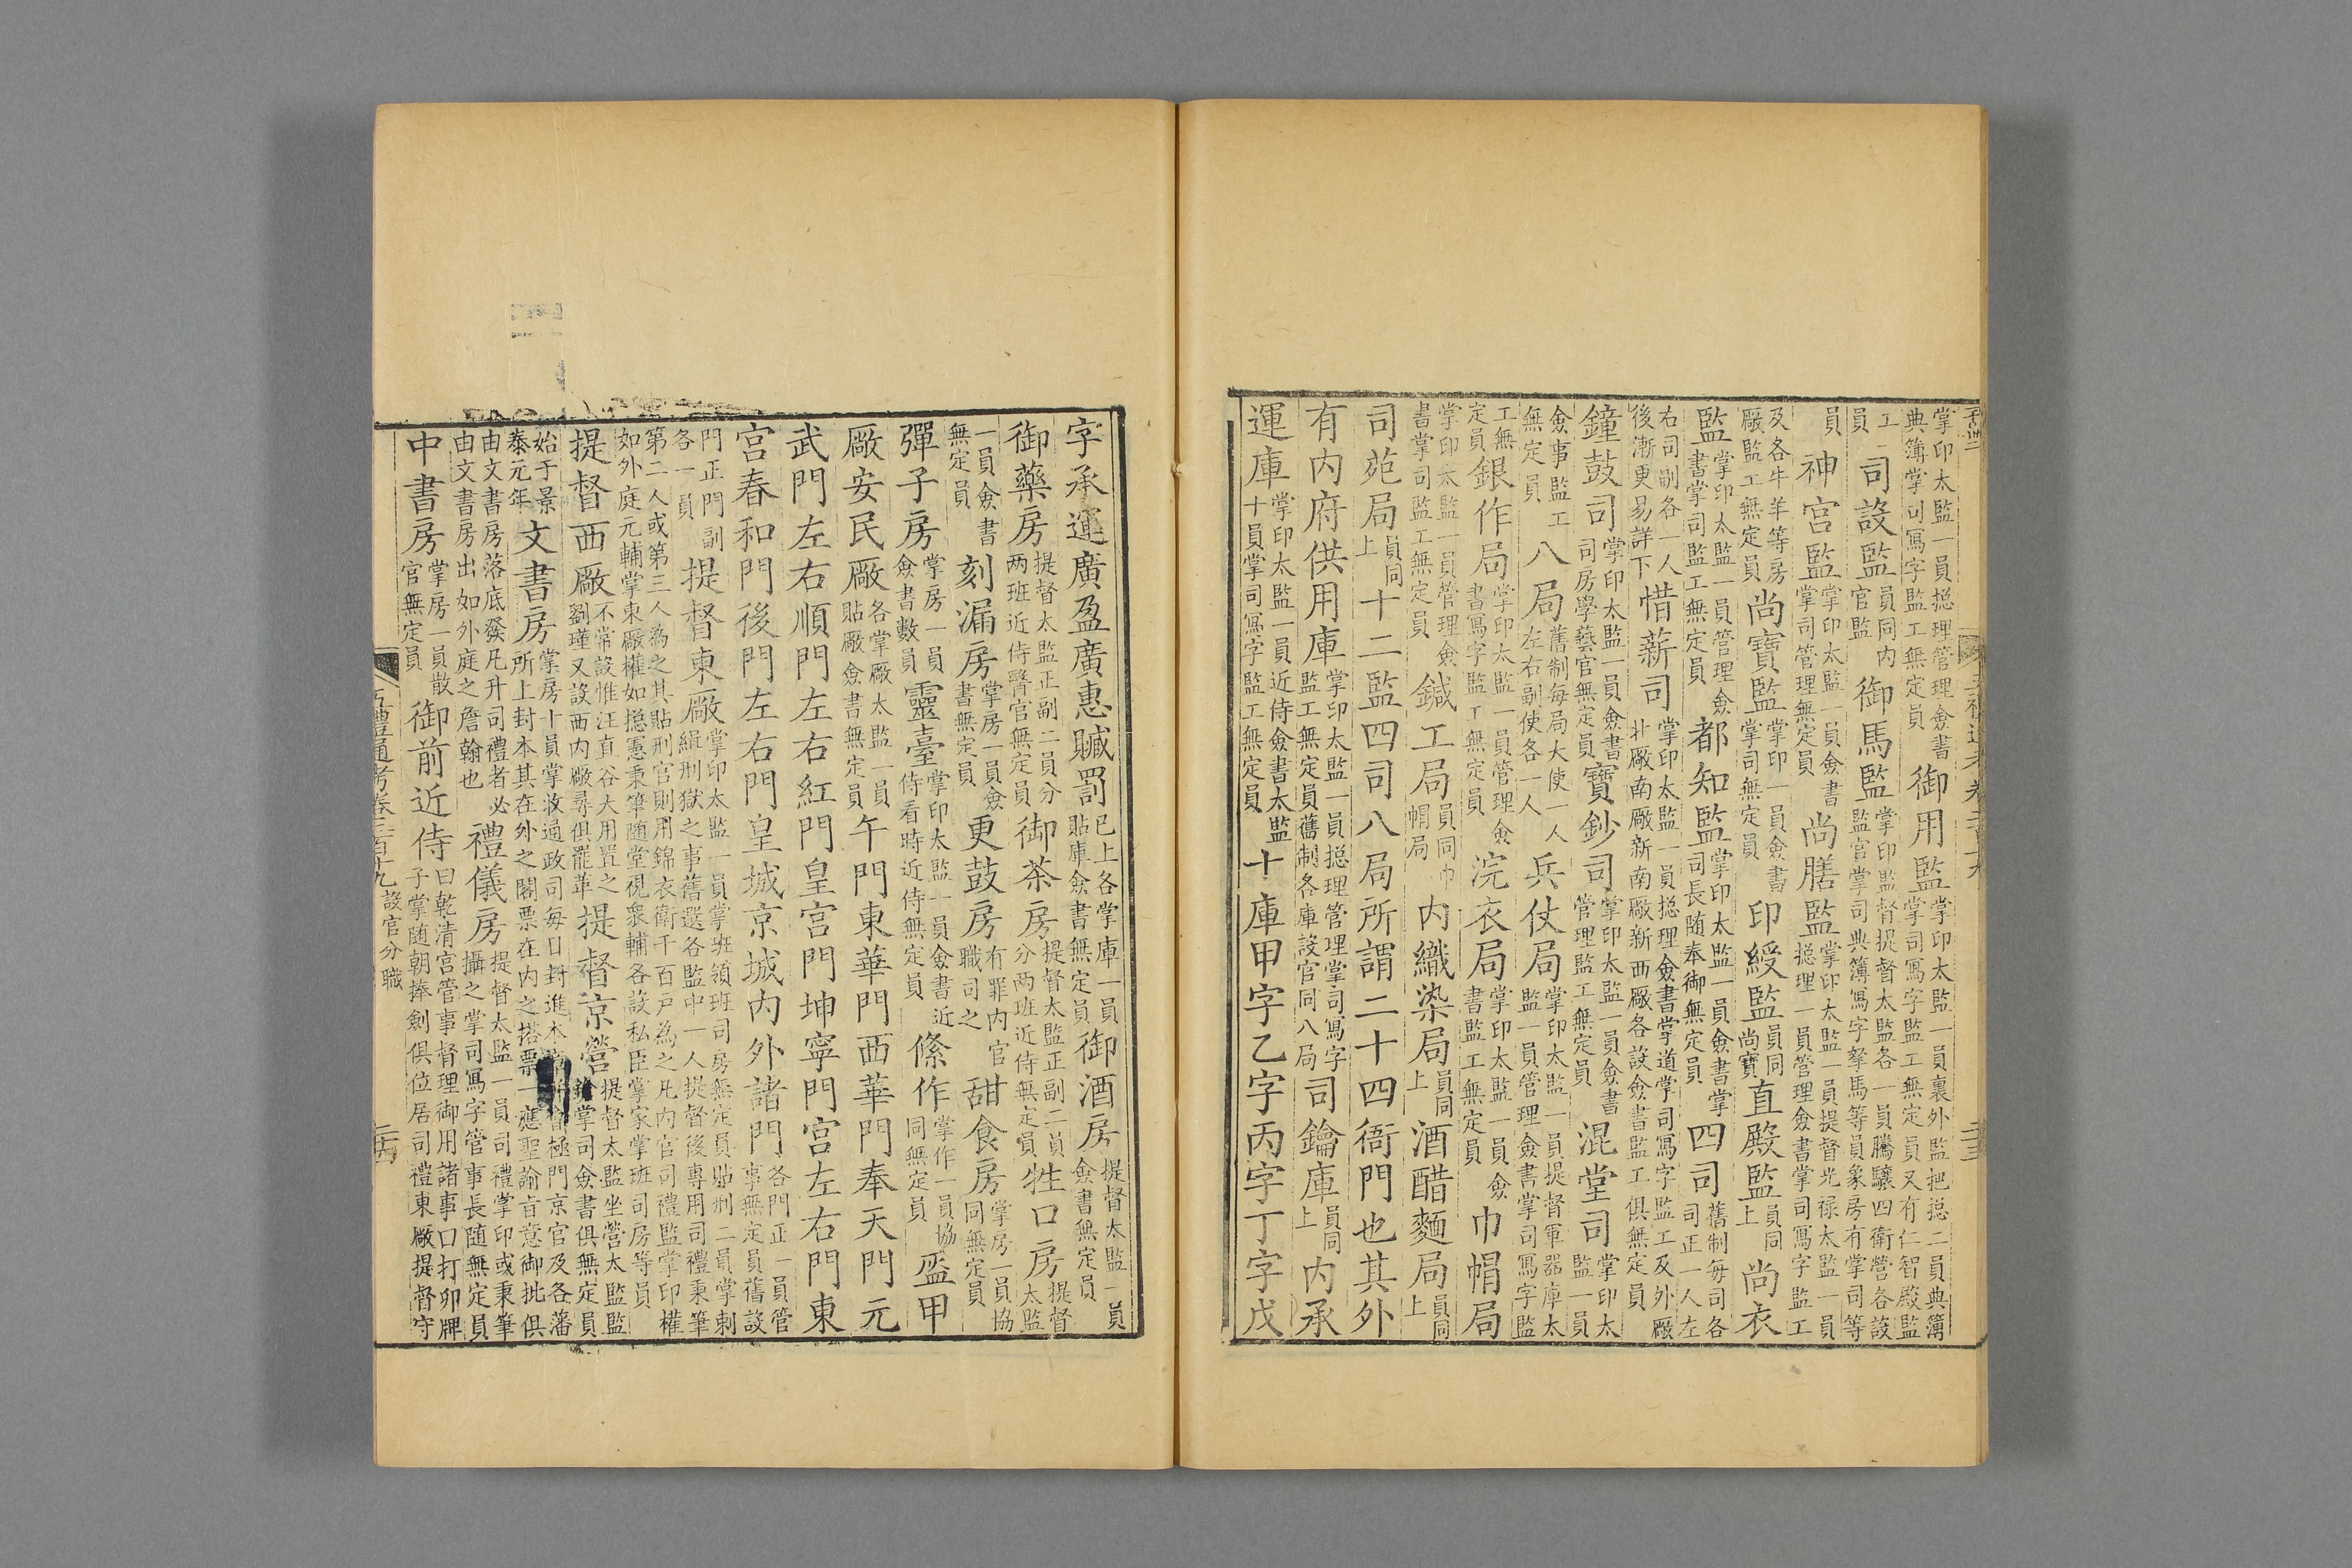 掌印太監一員總理管理僉書典簿掌司寫字監工無定員御用監掌印太監一員裏外監把總二員典簿掌司寫字監工無定員又有仁智殿監
工一員司設監員同内官監御馬監掌印監督提督太監各一員騰驤四衛營各設監官掌司典簿寫字拏馬等員象房有掌司等
員神宫監掌印太監一員僉書掌司管理無定員尚膳監掌印太監一員提督光禄太監一員總理一員管理僉書掌司寫字監工
及各牛羊等房廠監工無定員尚寶監掌印一員僉書掌司無定員印綬監員同尚寶直殿監員同上尚衣
監掌印太監一員管理僉書掌司監工無定員都知監掌印太監一員僉書掌司長随奉御無定員四司舊制每司各司正一人左
右司副各一人後漸更易詳下惜薪司掌印太監一員總理僉書掌道掌司寫字監工及外廠北廠南廠新南廠新西廠各設僉書監工俱無定員
鐘鼓司掌印太監一員僉書司房學藝官無定員寶鈔司掌印太監一員僉書管理監工無定員混堂司掌印太監一員
僉事監工無定員八局舊制每局大使一人左右副使各一人兵仗局掌印太監一員提督軍器庫太監一員管理僉書掌司寫字監
工無定員銀作局掌印太監一員管理僉書寫字監工無定員浣衣局掌印太監一員僉書監工無定員巾帽局
掌印太監一員管理僉書掌司監工無定員鍼工局員同巾帽局内織染局員同上酒醋麵局員同上
司苑局員同上十二監四司八局所謂二十四衙門也其外
有内府供用庫掌印太監一員總理管理掌司寫字監工無定員舊制各庫設官同八局司鑰庫員同上内承
運庫掌印太監一員近侍僉書太監十員掌司寫字監工無定員十庫甲字乙字丙字丁字戊
字承運廣盈廣惠贓罰已上各掌庫一員貼庫僉書無定員御酒房提督太監一員僉書無定員
御藥房提督太監正副二員分兩班近侍醫官無定員御茶房提督太監正副二員分兩班近侍無定員牲口房提督太監
一員僉書無定員刻漏房掌房一員僉書無定員更鼓房有罪内官職司之甜食房掌房一員協同無定員
彈子房掌房一員僉書數員靈臺掌印太監一員僉書近侍看時近侍無定員絛作掌作一員協同無定員盔甲
廠安民廠各掌廠太監一員貼廠僉書無定員午門東華門西華門奉天門元
武門左右順門左右紅門皇宫門坤寧門宫左右門東
宫春和門後門左右門皇城京城内外諸門各門正一員管事無定員舊設
門正門副各一員提督東廠掌印太監一員掌班領班司房無定員貼刑二員掌刺緝刑獄之事舊選各監中一人提督後專用司禮秉筆
第二人或第三人為之其貼刑官則用錦衣衛千百戸為之凡内官司禮監掌印權如外庭元輔掌東廠權如總憲秉筆随堂視衆輔各設私臣掌家掌班司房等員
提督西廠不常設惟汪直谷大用置之劉瑾又設西内廠尋俱罷革提督京營提督太監坐營太監監鎗掌司僉書俱無定員
始于景泰元年文書房掌房十員掌收通政司每日封進本章并會極門京官及各藩所上封本其在外之閣票在内之搭票一應聖諭旨意御批俱
由文書房落底發凡升司禮者必由文書房出如外庭之詹翰也禮儀房提督太監一員司禮掌印或秉筆攝之掌司寫字管事長随無定員
中書房掌房一員散官無定員御前近侍曰乾清宫管事督理御用諸事曰打卯牌子掌随朝捧劍俱位居司禮東廠提督守
五禮通考卷二百十九 設官分職 二十四